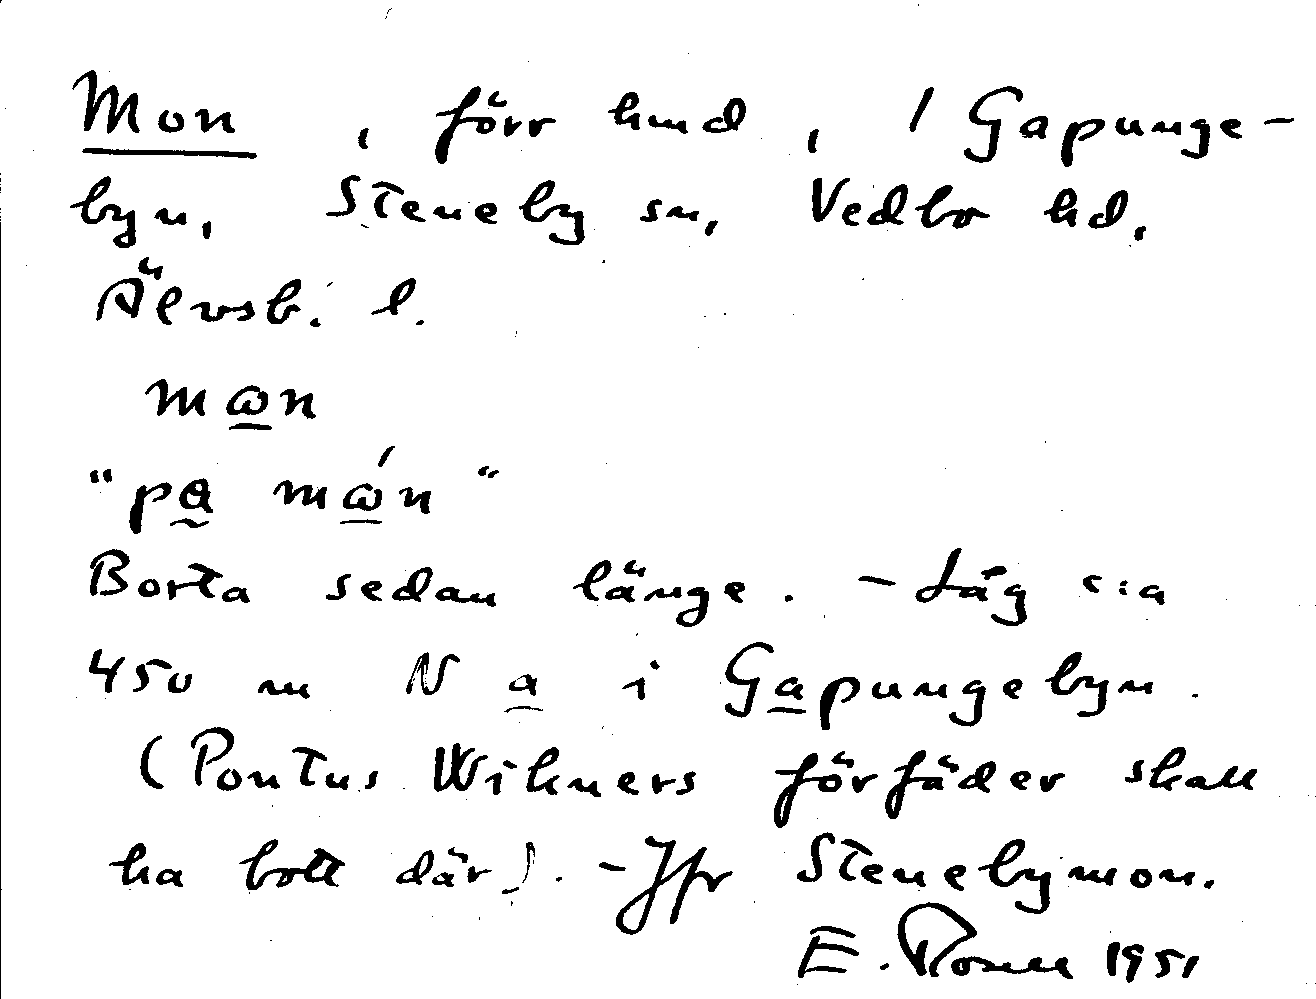 Mon, förr hmd, / Gapunge-
byn, Steneby sn, Vedbo hd,
Älvsb. l.
mωn
"pa mώn"
Borta sedan länge. - Låg c:a
450 m N a i Gapungebyn.
(Pontus Wikners förfäder skall
ha bott där). - Jfr Stenebymon.
E. Rosell 1951